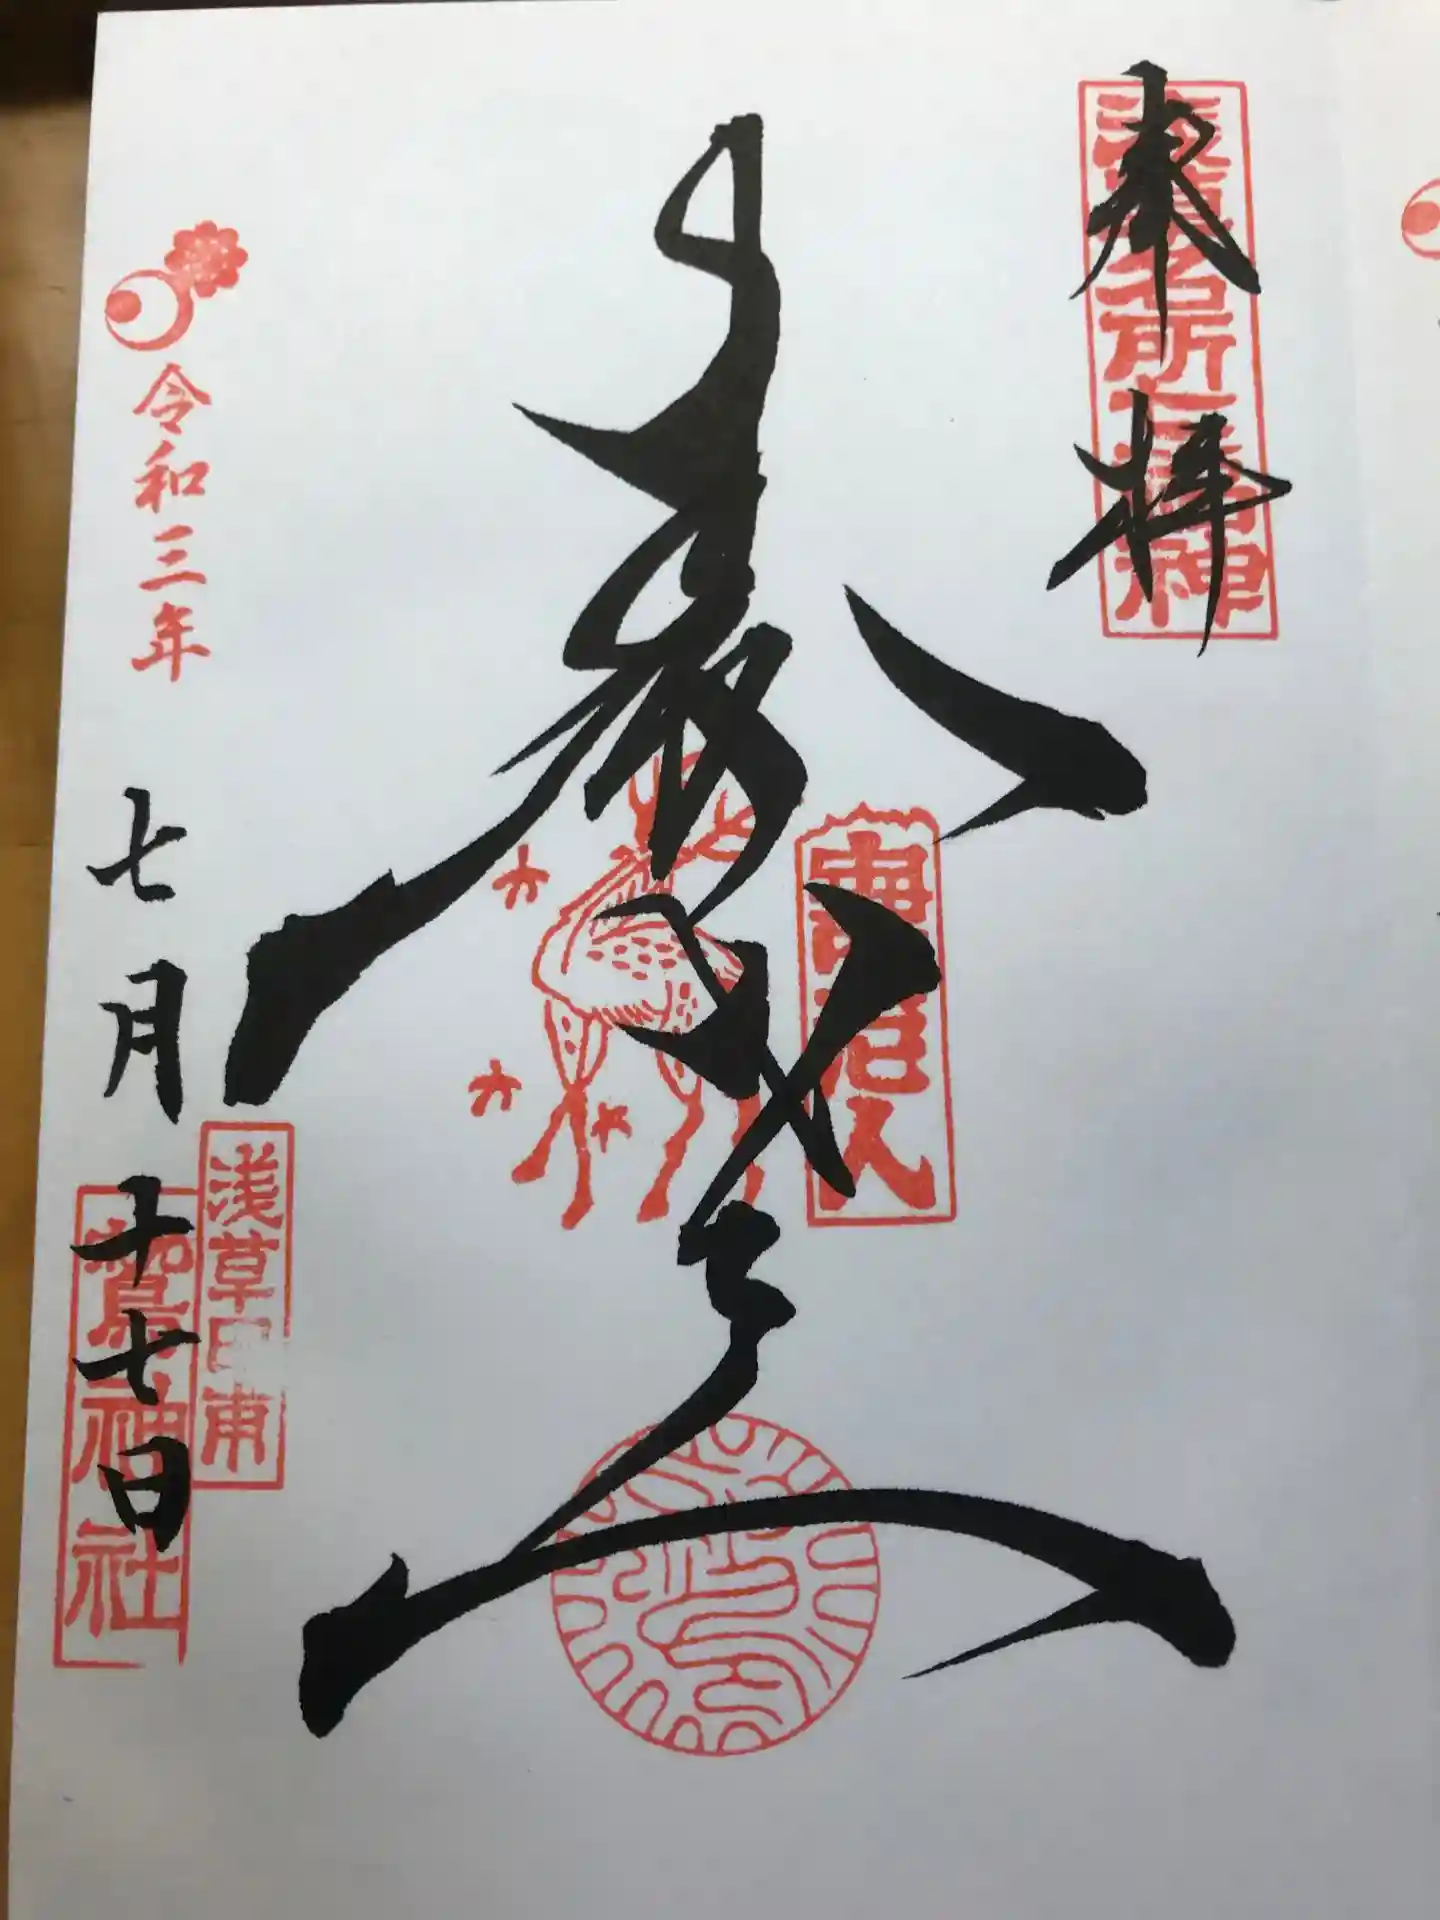 奉拝
浅草名所七福神
寿老人
令和三年
七月十七日
浅草田甫
鷲神社